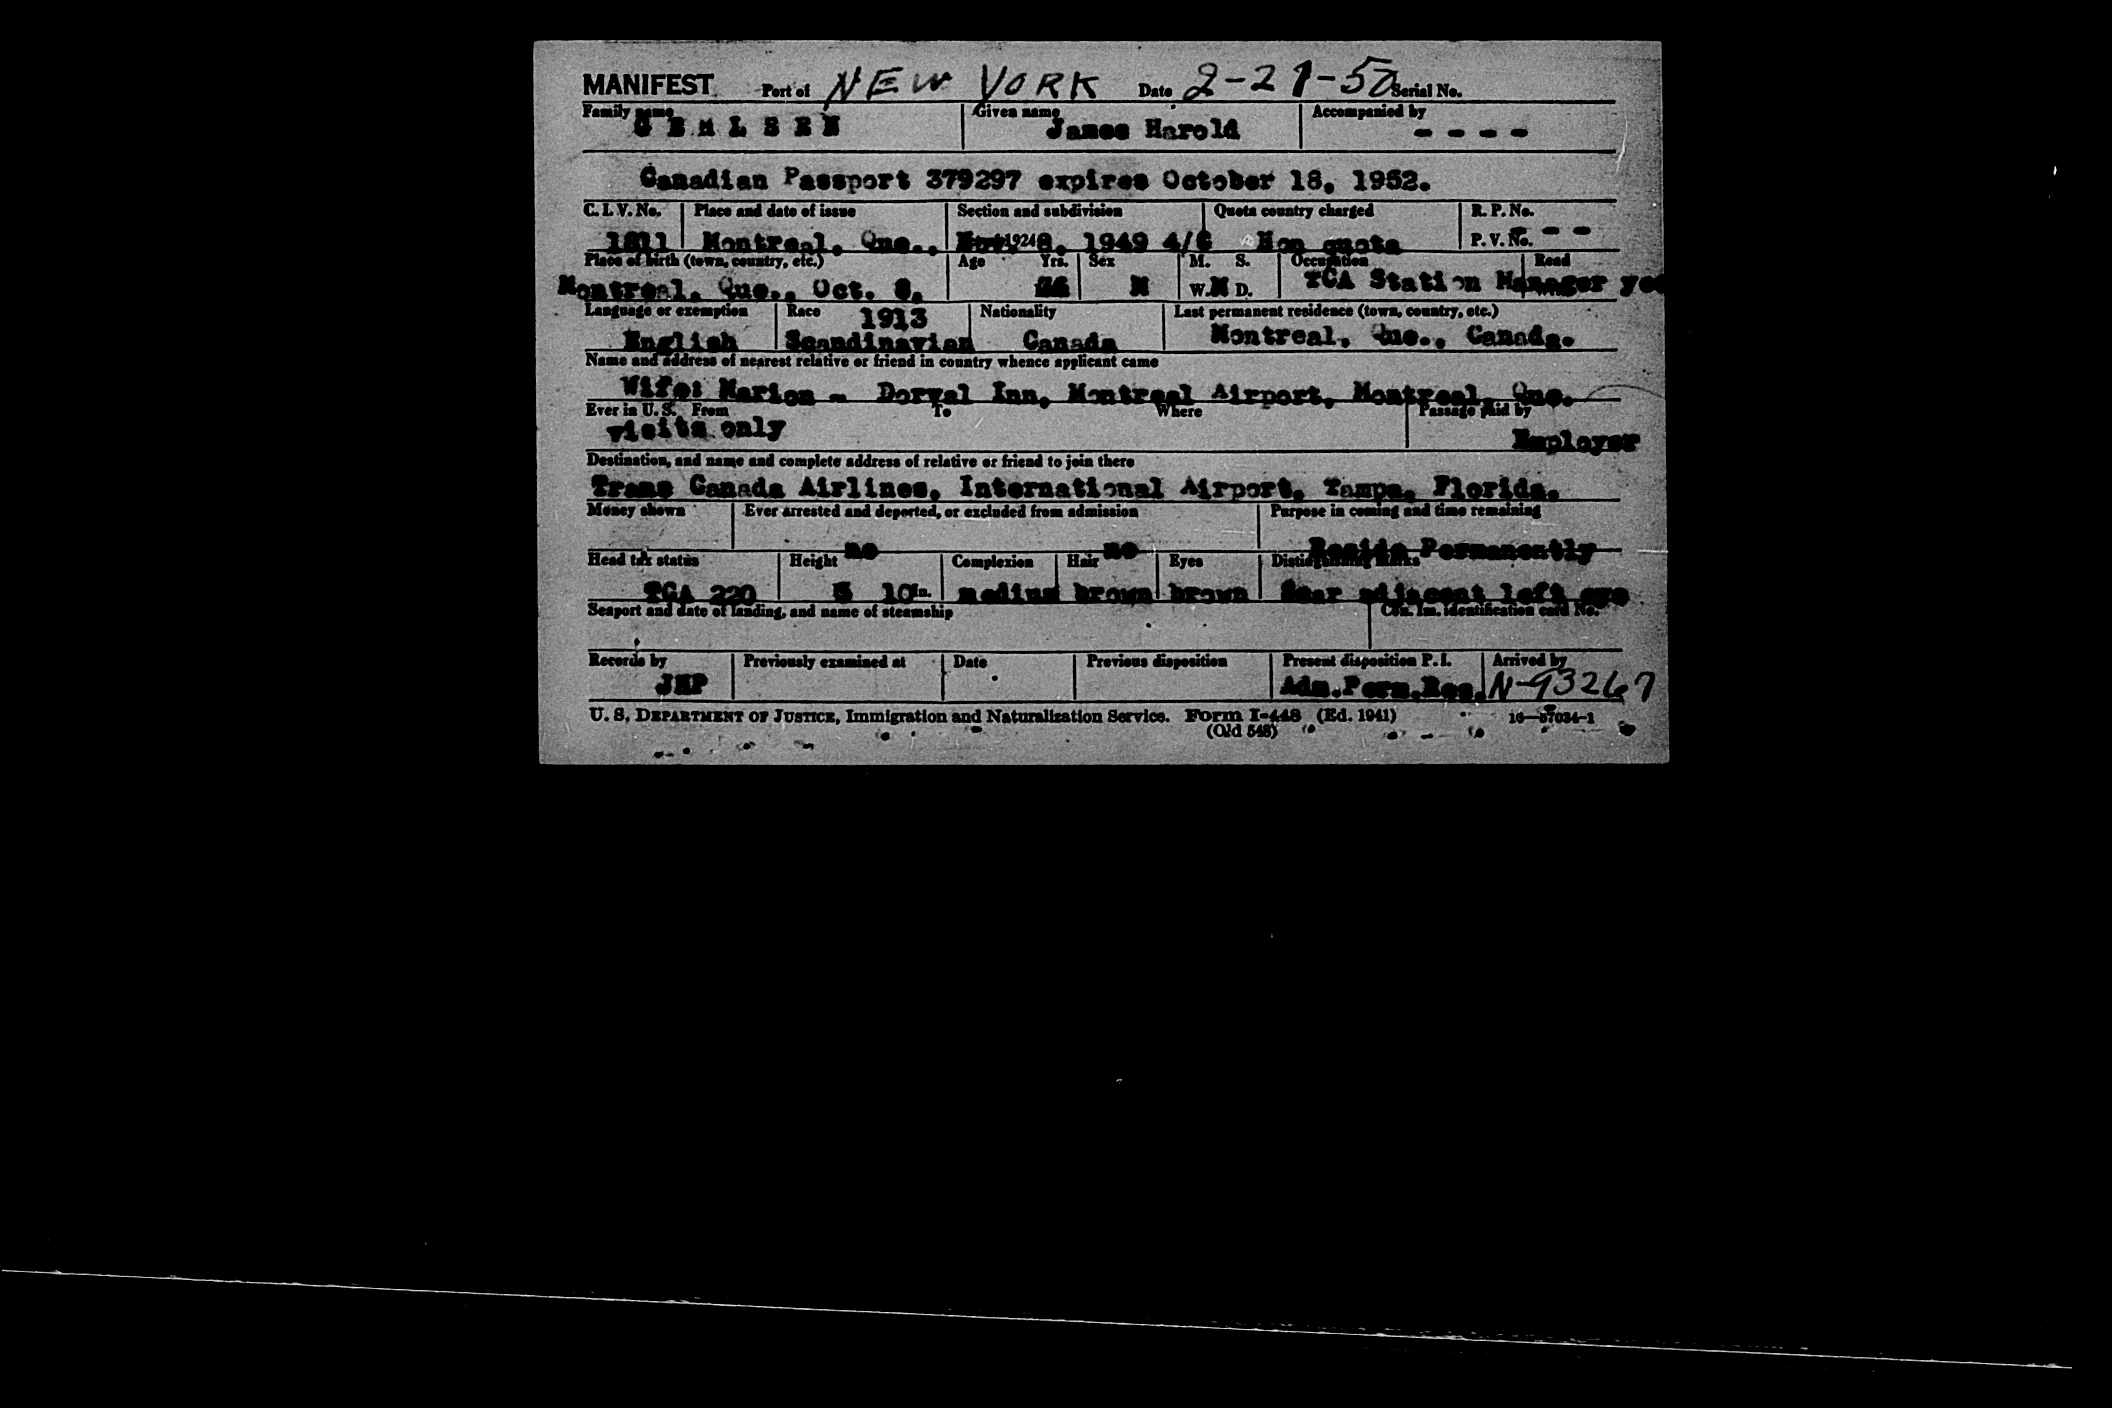 MANIFEST Port of NEW YORK Date 2-21-50 Serial No.
Family name Given name Accompanied by
James Harold - - - -
Canadian Passport 379297 expires October 18, 1952.
C. I. V. No. Place and date of issue Section and subdivision Quota country charged R. P. No.
1811 Montreal, Que., 1924 8, 1949 4/C Non quota P. V. No. - - -
Place of birth (town, country, etc.) Age Yrs. Sex M. S. Occupation Read
Montreal, Que., Oct. 8, M W. M D. TCA Station Manager yes
Language or exemption Race 1913 Nationality Last permanent residence (town, country, etc.)
English Scandinavian Canada Montreal, Que., Canada.
Name and address of nearest relative or friend in country whence applicant came
Wife: Marion - Dorval Inn, Montreal Airport, Montreal, Que.
Ever in U. S. From To Where Passage paid by
visits only Employer
Destination, and name and complete address of relative or friend to join there
Trans Canada Airlines, International Airport, Tampa, Florida.
Money shown Ever arrested and deported, or excluded from admission Purpose in coming and time remaining
no no Reside Permanently
Head tax status Height Complexion Hair Eyes Distinguishing marks
TCA 220 5 10 in. medium brown brown Scar adjacent left eye
Seaport and date of landing, and name of steamship Can. Im. identification card No.
Records by Previously examined at Date Previous disposition Present disposition P. I. Arrived by
JHP Adm.Perm.Res. N-93267
U. S. DEPARTMENT OF JUSTICE, Immigration and Naturalization Service. Form I-448 (Ed. 1941) 16—57034-1
(Old 548)